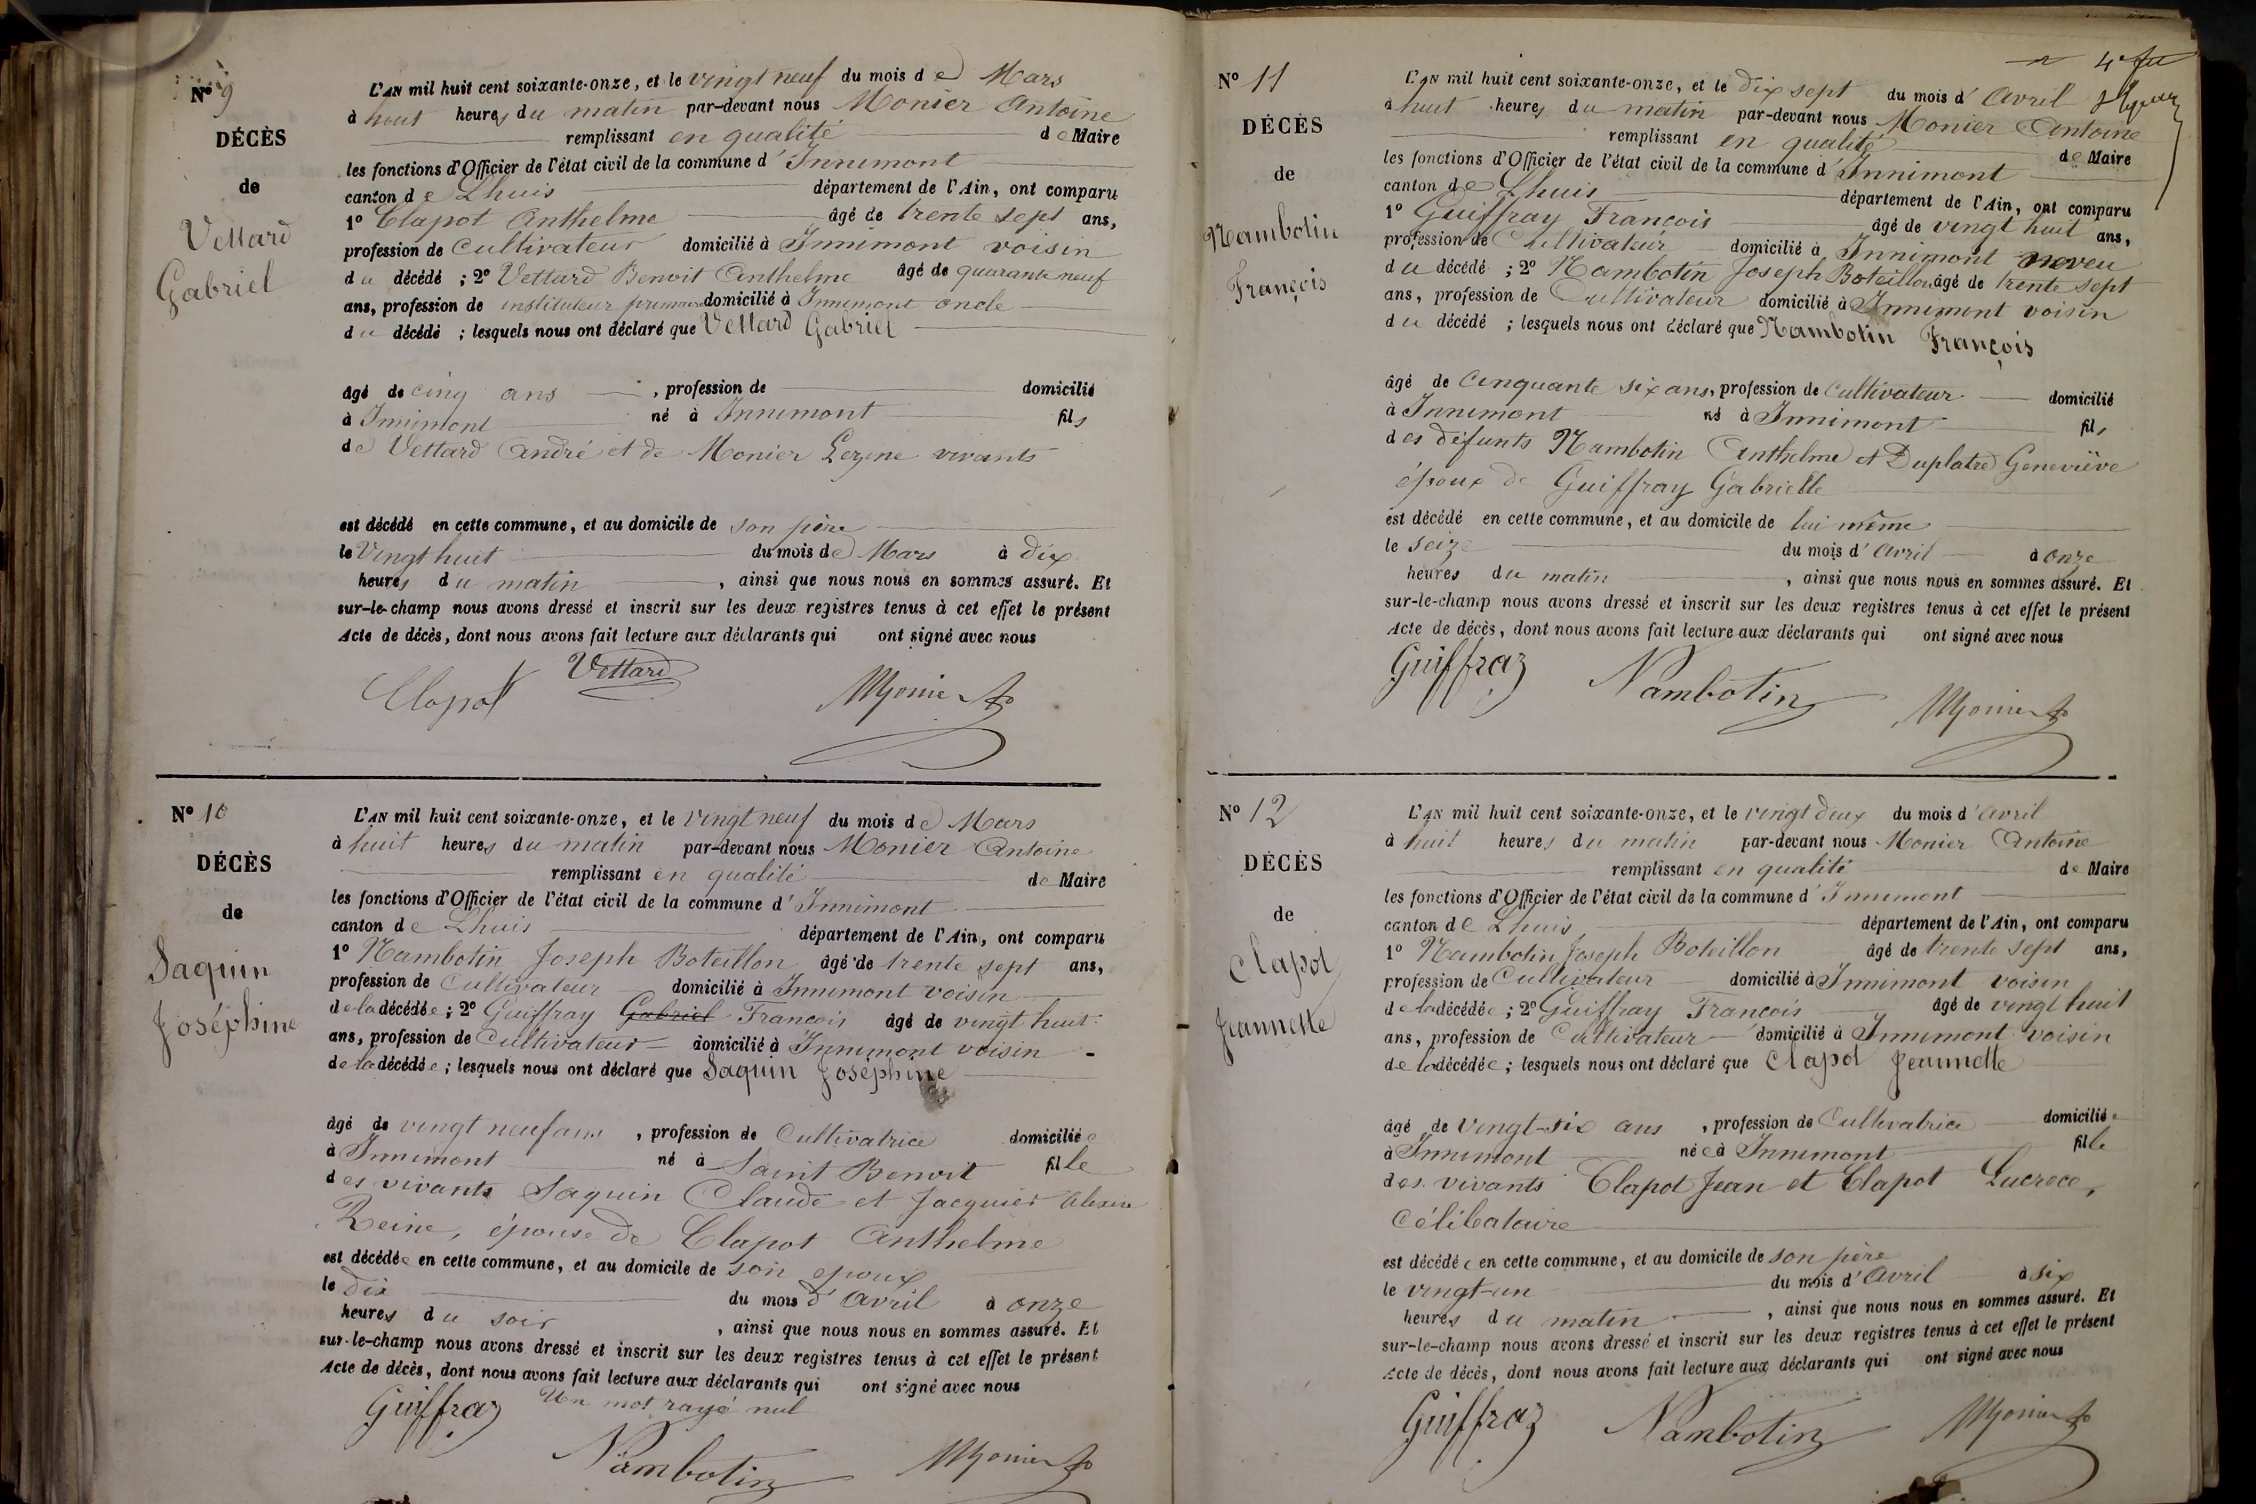 Nº 9
DÉCÈS
de
Vettard
Gabriel
L'AN mil huit cent soixante-onze, et le vingt neuf du mois de Mars
à huit heures du matin par-devant nous Monier Antoine
remplissant en qualité de Maire
les fonctions d'Officier de l'état civil de la commune d'Innimont
canton de Lhuis département de l'Ain, ont comparu
1º Clapot Anthelme âgé de trente sept ans,
profession de Cultivateur domicilié à Innimont voisin
du décédé ; 2º Vettard Benoit Anthelme âgé de quarante neuf
ans, profession de instituteur primaire domicilié à Innimont oncle
du décédé ; lesquels nous ont déclaré que Vettard Gabriel
âgé de cinq ans , profession de domicilié
à Innimont né à Innimont fils
de Vettard André et de Monier vivants
est décédé en cette commune, et au domicile de son père
le Vingt huit du mois de Mars à dix
heures du matin , ainsi que nous nous en sommes assuré. Et
sur-le-champ nous avons dressé et inscrit sur les deux registres tenus à cet effet le présent
Acte de décès, dont nous avons fait lecture aux déclarants qui ont signé avec nous
Clapot Vettard Monier
Nº 10
DÉCÈS
de
Saquin
Joséphine
L'AN mil huit cent soixante-onze, et le vingt neuf du mois de Mars
à huit heures du matin par-devant nous Monier Antoine
remplissant en qualité de Maire
les fonctions d'Officier de l'état civil de la commune d'Innimont
canton de Lhuis département de l'Ain, ont comparu
1º Nambotin Joseph Boteillon âgé de trente sept ans,
profession de Cultivateur domicilié à Innimont voisin
de la décédée ; 2º Guiffray Gabriel François âgé de vingt huit
ans, profession de Cultivateur domicilié à Innimont voisin
de la décédée ; lesquels nous ont déclaré que Saquin Joséphine
âgé de vingt neuf ans , profession de Cultivatrice domiciliée
à Innimont né à Saint Benoit fille
des vivants Saquin Claude et Jacquier
Reine, épouse de Clapot Anthelme
est décédée en cette commune, et au domicile de son epoux
le dix du mois d'Avril à onze
heures du soir , ainsi que nous nous en sommes assuré. Et
sur-le-champ nous avons dressé et inscrit sur les deux registres tenus à cet effet le présent
Acte de décès, dont nous avons fait lecture aux déclarants qui ont signé avec nous
Un mot rayé nul
Guiffray Nambotin Monier
Nº 11
DÉCÈS
de
Nambotin
François
L'AN mil huit cent soixante-onze, et le dix sept du mois d'Avril
à huit heures du matin par-devant nous Monier Antoine
remplissant en qualité de Maire
les fonctions d'Officier de l'état civil de la commune d'Innimont
canton de Lhuis département de l'Ain, ont comparu
1º Guiffray François âgé de vingt huit ans,
profession de Cultivateur domicilié à Innimont neveu
du décédé ; 2º Nambotin Joseph Boteillon âgé de trente sept
ans, profession de Cultivateur domicilié à Innimont voisin
du décédé ; lesquels nous ont déclaré que Nambotin François
âgé de Cinquante six ans, profession de Cultivateur domicilié
à Innimont né à Innimont fils
des défunts Nambotin Anthelme et Duplatre Geneviève
époux de Guiffray Gabrielle
est décédé en cette commune, et au domicile de lui même
le seize du mois d'Avril à onze
heures du matin , ainsi que nous nous en sommes assuré. Et
sur-le-champ nous avons dressé et inscrit sur les deux registres tenus à cet effet le présent
Acte de décès, dont nous avons fait lecture aux déclarants qui ont signé avec nous
Guiffray Nambotin Monier
Nº 12
DÉCÈS
de
Clapot
Jeannette
L'AN mil huit cent soixante-onze, et le vingt deux du mois d'Avril
à huit heures du matin par-devant nous Monier Antoine
remplissant en qualité de Maire
les fonctions d'Officier de l'état civil de la commune d'Innimont
canton de Lhuis département de l'Ain, ont comparu
1º Nambotin Joseph Boteillon âgé de trente sept ans,
profession de Cultivateur domicilié à Innimont voisin
de la décédée ; 2º Guiffray François âgé de vingt huit
ans, profession de Cultivateur domicilié à Innimont voisin
de la décédée ; lesquels nous ont déclaré que Clapot Jeannette
âgé de vingt-six ans , profession de Cultivatrice domiciliée
à Innimont née à Innimont fille
des vivants Clapot Jean et Clapot Lucrece,
Célibataire
est décédée en cette commune, et au domicile de son père
le vingt-un du mois d'Avril à six
heures du matin , ainsi que nous nous en sommes assuré. Et
sur-le-champ nous avons dressé et inscrit sur les deux registres tenus à cet effet le présent
Acte de décès, dont nous avons fait lecture aux déclarants qui ont signé avec nous
Guiffray Nambotin Monier